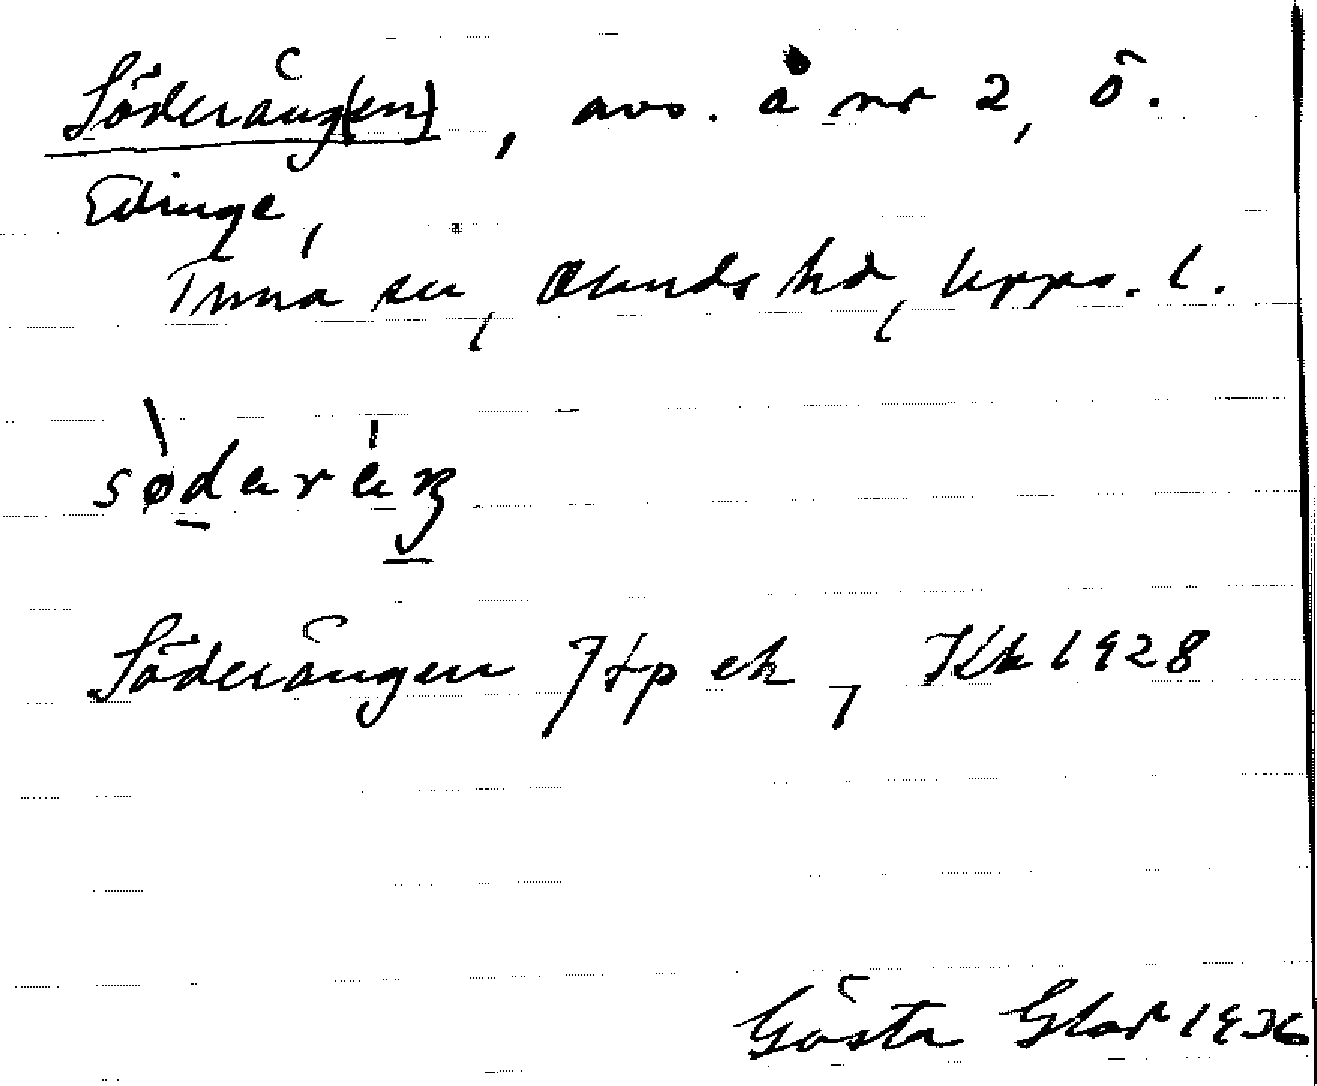 Söderäng(en), avs. å nr 2, Ö.
Edinge,
Tuna sn, Olands hd, Upps. l.
söderäŋ
Söderängen Jfp ek, Kk 1928
Gösta Glad 1936